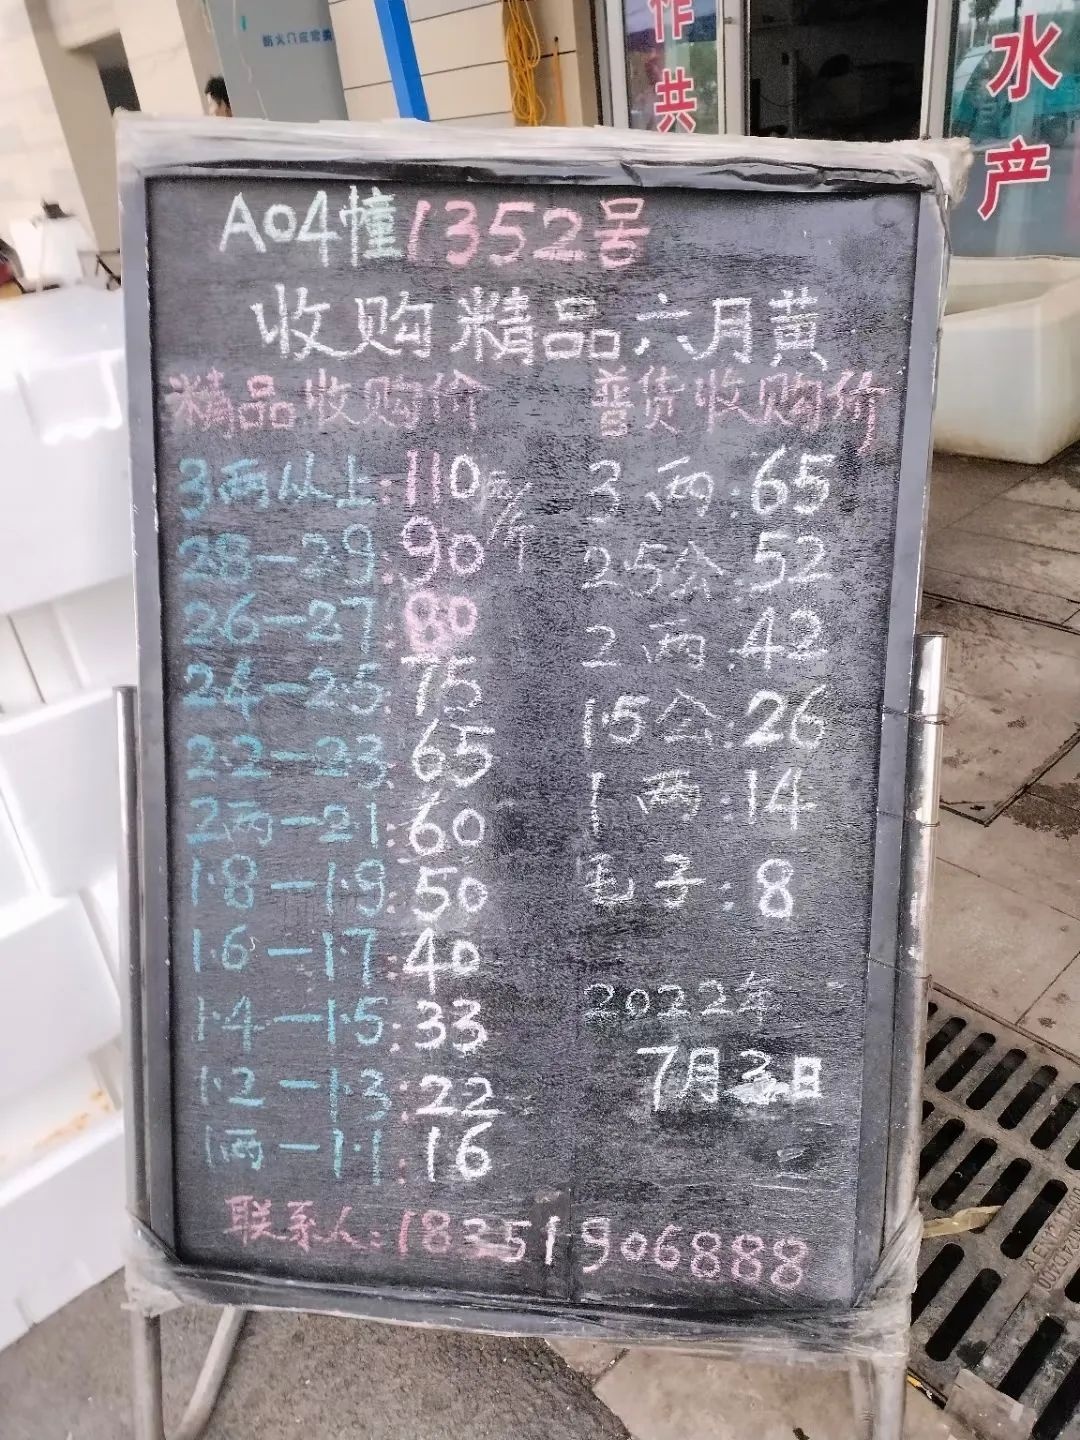 防火门应常关
作共
水产
A04幢1352号
收购精品六月黄
精品收购价
3两从上:110元/斤
28-29:90
26-27:80
24-2.5:75
2.2-23:65
2两-21:60
1.8-1.9:50
1.6-1.7:40
1.4-1.5:33
1.2-1.3:22
1两-1.1:16
普货收购价
3两:65
25公:52
2两:42
1.5公:26
1两:14
毛子:8
2022年
7月3日
联系人:18351906888